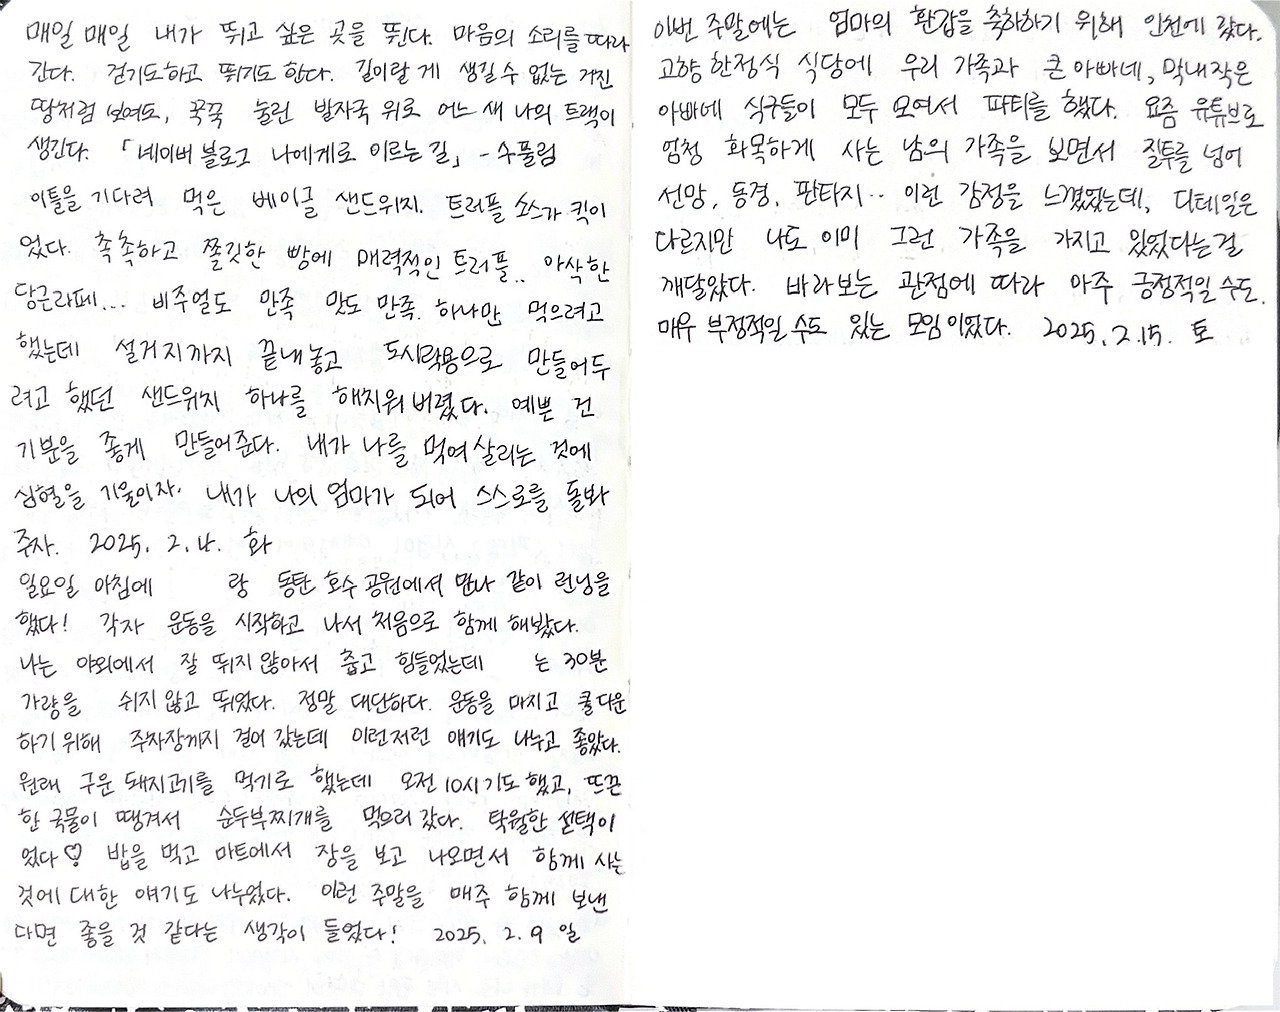 매일 매일 내가 뛰고 싶은 곳을 뛴다. 마음의 소리를 따라
간다. 걷기도하고 뛰기도 한다. 길이랄 게 생길 수 없는 거친
땅처럼 보여도, 꾹꾹 눌린 발자국 위로 어느 새 나의 트랙이
생긴다. 「네이버 블로그 나에게로 이르는 길」 - 수풀림
이틀을 기다려 먹은 베이글 샌드위치. 트러플 소스가 킥이
었다. 촉촉하고 쫄깃한 빵에 매력적인 트러플.. 아삭한
당근라페... 비주얼도 만족 맛도 만족. 하나만 먹으려고
했는데 설거지까지 끝내놓고 도시락용으로 만들어두
려고 했던 샌드위치 하나를 해치워 버렸다. 예쁜 건
기분을 좋게 만들어준다. 내가 나를 먹여 살리는 것에
심혈을 기울이자. 내가 나의 엄마가 되어 스스로를 돌봐
주자. 2025. 2. 4. 화
일요일 아침에 랑 동탄 호수 공원에서 만나 같이 런닝을
했다! 각자 운동을 시작하고 나서 처음으로 함께 해봤다.
나는 야외에서 잘 뛰지 않아서 춥고 힘들었는데 는 30분
가량을 쉬지 않고 뛰었다. 정말 대단하다. 운동을 마치고 쿨다운
하기 위해 주차장까지 걸어 갔는데 이런저런 얘기도 나누고 좋았다.
원래 구운 돼지고기를 먹기로 했는데 오전 10시기도 했고, 뜨끈
한 국물이 땡겨서 순두부찌개를 먹으러 갔다. 탁월한 선택이
었다♡ 밥을 먹고 마트에서 장을 보고 나오면서 함께 사는
것에 대한 얘기도 나누었다. 이런 주말을 매주 함께 보낸
다면 좋을 것 같다는 생각이 들었다! 2025. 2. 9 일
이번 주말에는 엄마의 환갑을 축하하기 위해 인천에 갔다.
고향 한정식 식당에 우리 가족과 큰아빠네, 막내작은
아빠네 식구들이 모두 모여서 파티를 했다. 요즘 유튜브로
엄청 화목하게 사는 남의 가족을 보면서 질투를 넘어
선망, 동경, 판타지.. 이런 감정을 느꼈었는데, 디테일은
다르지만 나도 이미 그런 가족을 가지고 있었다는걸
깨달았다. 바라보는 관점에 따라 아주 긍정적일 수도.
매우 부정적일 수도 있는 모임이었다. 2025. 2. 15. 토